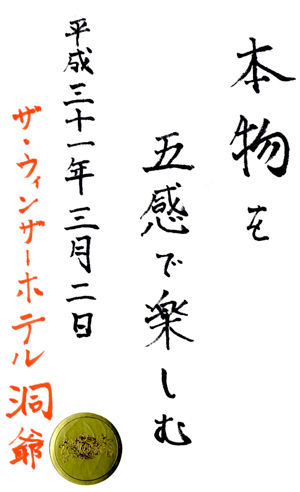 本物を
五感で楽しむ
平成三十一年三月二日
ザ・ウィンザーホテル洞爺